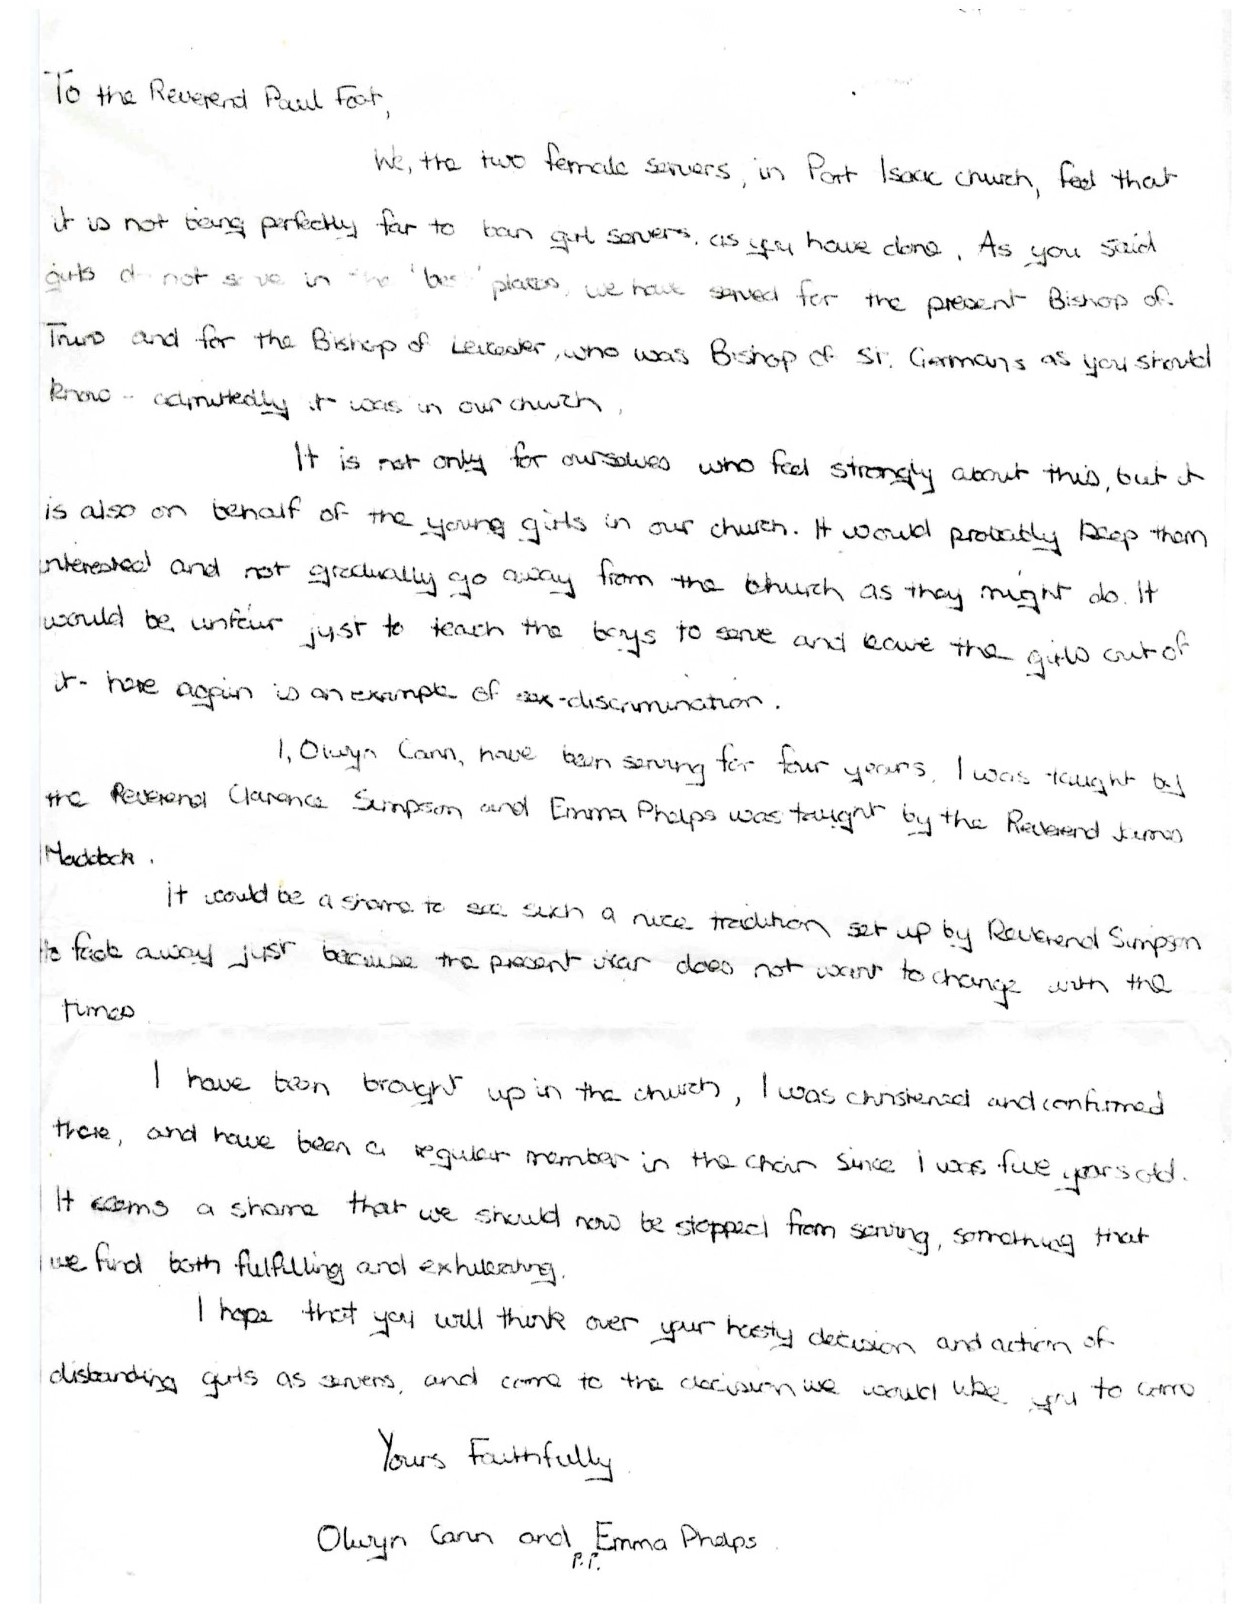 To the Reverend Paul Foot,
We, the two female servers, in Port Isaac church, feel that
it is not being perfectly fair to ban girl servers, as you have done. As you said
girls do not serve in the 'best' places, we have served for the present Bishop of
Truro and for the Bishop of Leicester, who was Bishop of St. Germans as you should
know - admittedly it was in our church.
It is not only for ourselves who feel strongly about this, but it
is also on behalf of the young girls in our church. It would probably keep them
interested and not gradually go away from the church as they might do. It
would be unfair just to teach the boys to serve and leave the girls out of
it - here again is an example of sex-discrimination.
I, Olwyn Cann, have been serving for four years. I was taught by
the Reverend Clarence Simpson and Emma Phelps was taught by the Reverend James
Maddock.
it would be a shame to see such a nice tradition set up by Reverend Simpson
to fade away just because the present vicar does not want to change with the
times
I have been brought up in the church, I was christened and confirmed
there, and have been a regular member in the choir since I was five years old.
It seems a shame that we should now be stopped from serving, something that
we find both fulfilling and exhilerating.
I hope that you will think over your hasty decision and action of
disbanding girls as servers, and come to the decision we would like you to come
Yours Faithfully
Olwyn Cann and Emma Phelps.
P.P.